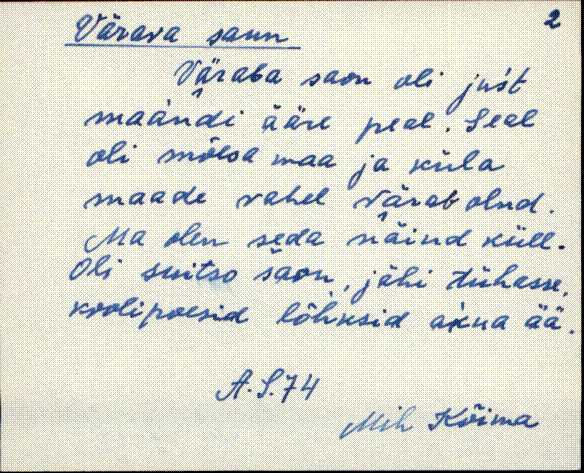 2
Värava saun
Väraba saon oli just
maandi ääre peal. Seal
oli mõesa maa ja küla
maade vahel värab olnd.
Ma olen seda näind küll.
Oli suitso saon, jähi tühasse,
koolipoesid lõhksid akna ää.
A.S.74
Mih Kõima